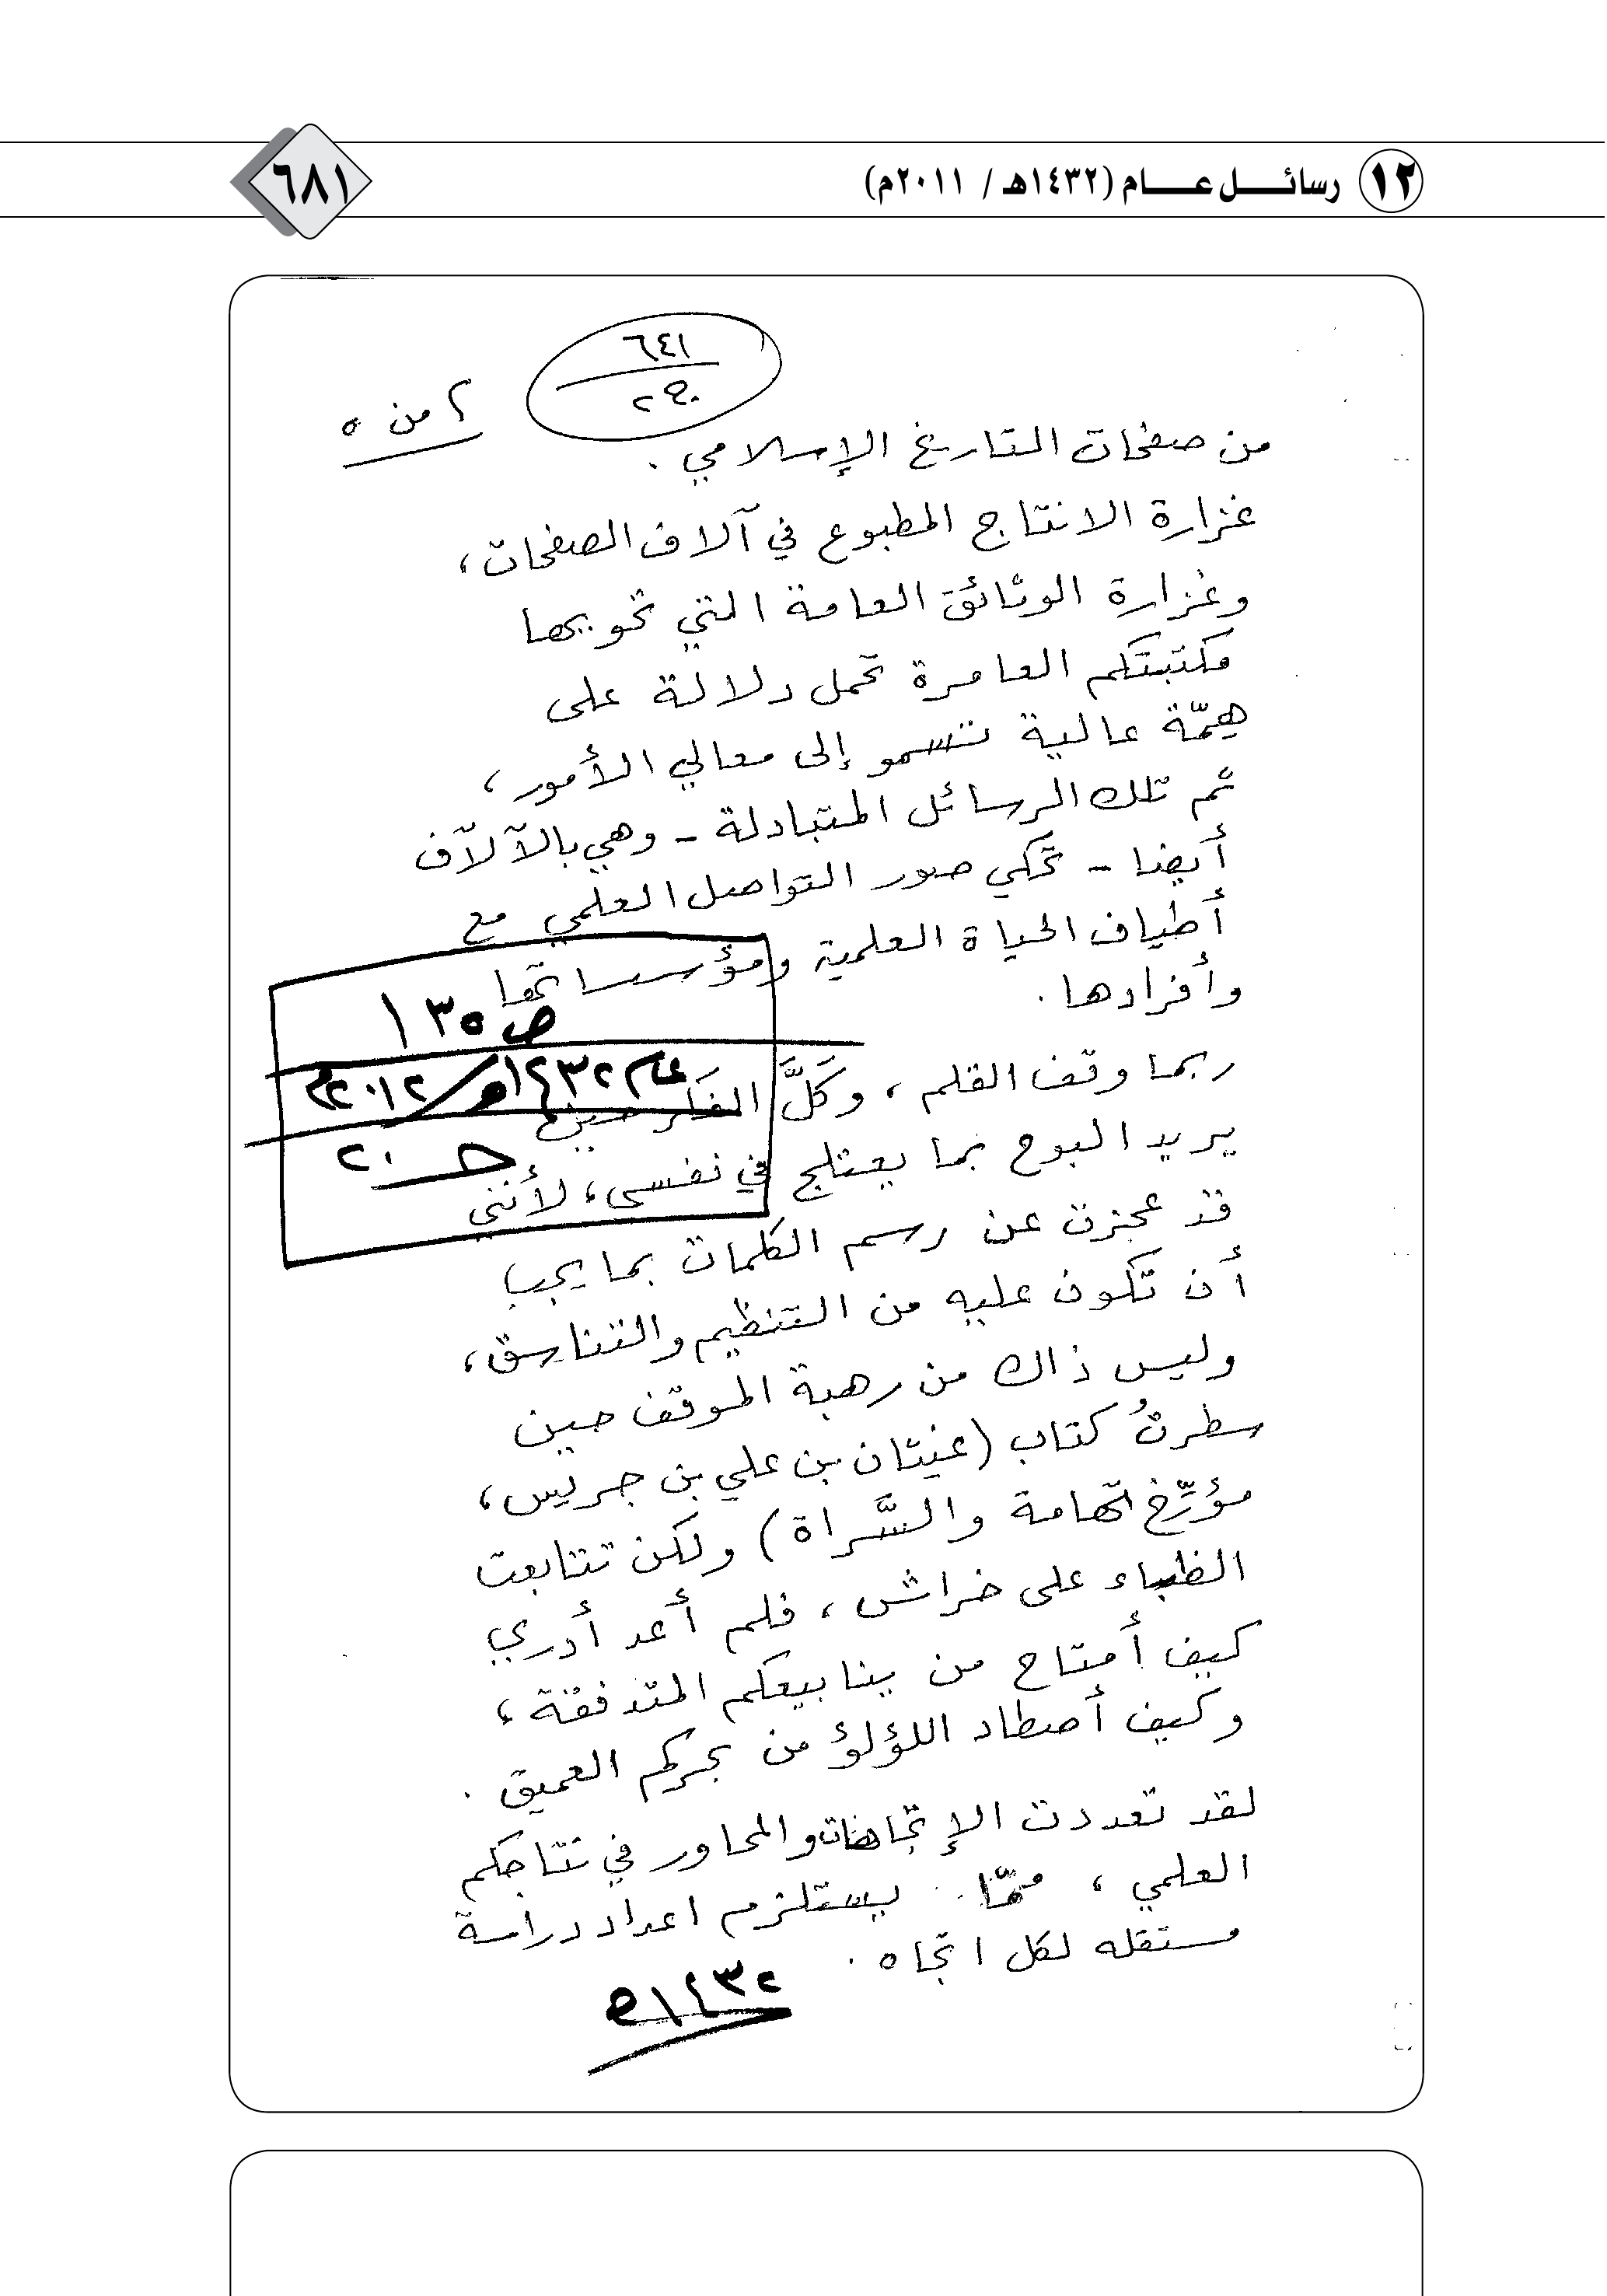 ١٢ رسائل عام (١٤٣٢هـ / ٢٠١١م)
٦٨١
٦٤١
جـ ٢٠
٢ من ٥
من صفحات التاريخ الإسلامي .
غزارة الانتاج المطبوع في آلاف الصفحات ،
وغزارة الوثائق العامة التي تحويها
مكتبتكم العامرة تحمل دلالة على
هِمّة عالية تسمو إلى معالي الأمور ،
ثم تلك الرسائل المتبادلة - وهي بالآلآف
أيضا - تحكي صور التواصل العلمي مع
أطياف الحياة العلمية ومؤسساتها
وأفرادها .
ص ١٣٥
عام ١٤٣٢هـ / ٢٠١٢م
جـ ٢٠
ربما وقف القلم ، وكَلَّ الفكر حين
يريد البوح بما يعتلج في نفسي ، لأنني
قد عجزت عن رسم الكلمات بما يجب
أن تكون عليه من التنظيم والتناسق ،
وليس ذاك من رهبة الموقف حين
سطرتُ كتاب (غيثان بن علي بن جريس ،
مؤرِّخ تهامة والسَّراة) ولكن تتابعت
الظباء على خراش ، فلم أعد أدري
كيف أمتاح من ينابيعكم المتدفقة ،
وكيف أصطاد اللؤلؤ من بحركم العميق .
لقد تعددت الإتجاهات والمحاور في نتاجكم
العلمي ، ممّا يستلزم اعداد دراسة
مستقله لكل اتجاه .
١٤٣٢هـ